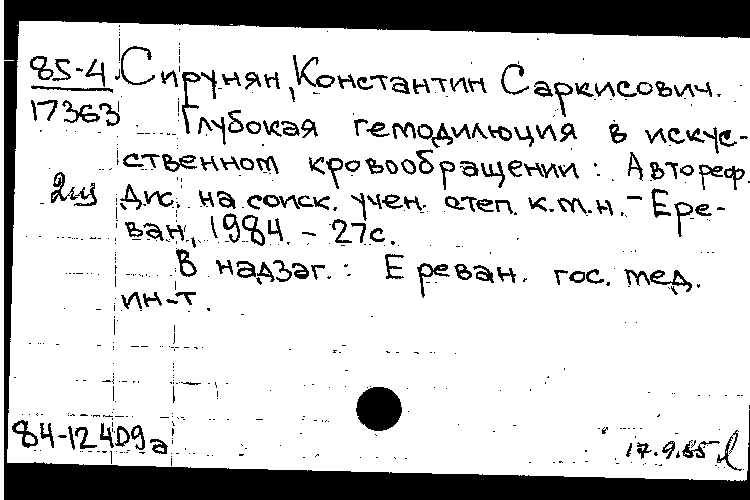 85-4
17363
Сирунян, Константин Саркисович.
Глубокая гемодилюция в искус-
ственном кровообращении: Автореф.
2щ Дис. на соиск. учен. степ. к.м.н. - Ере-
ван, 1984. - 27с.
В надзаг.: Ереван. гос. мед.
ин-т.
84-12409а
17.9.85